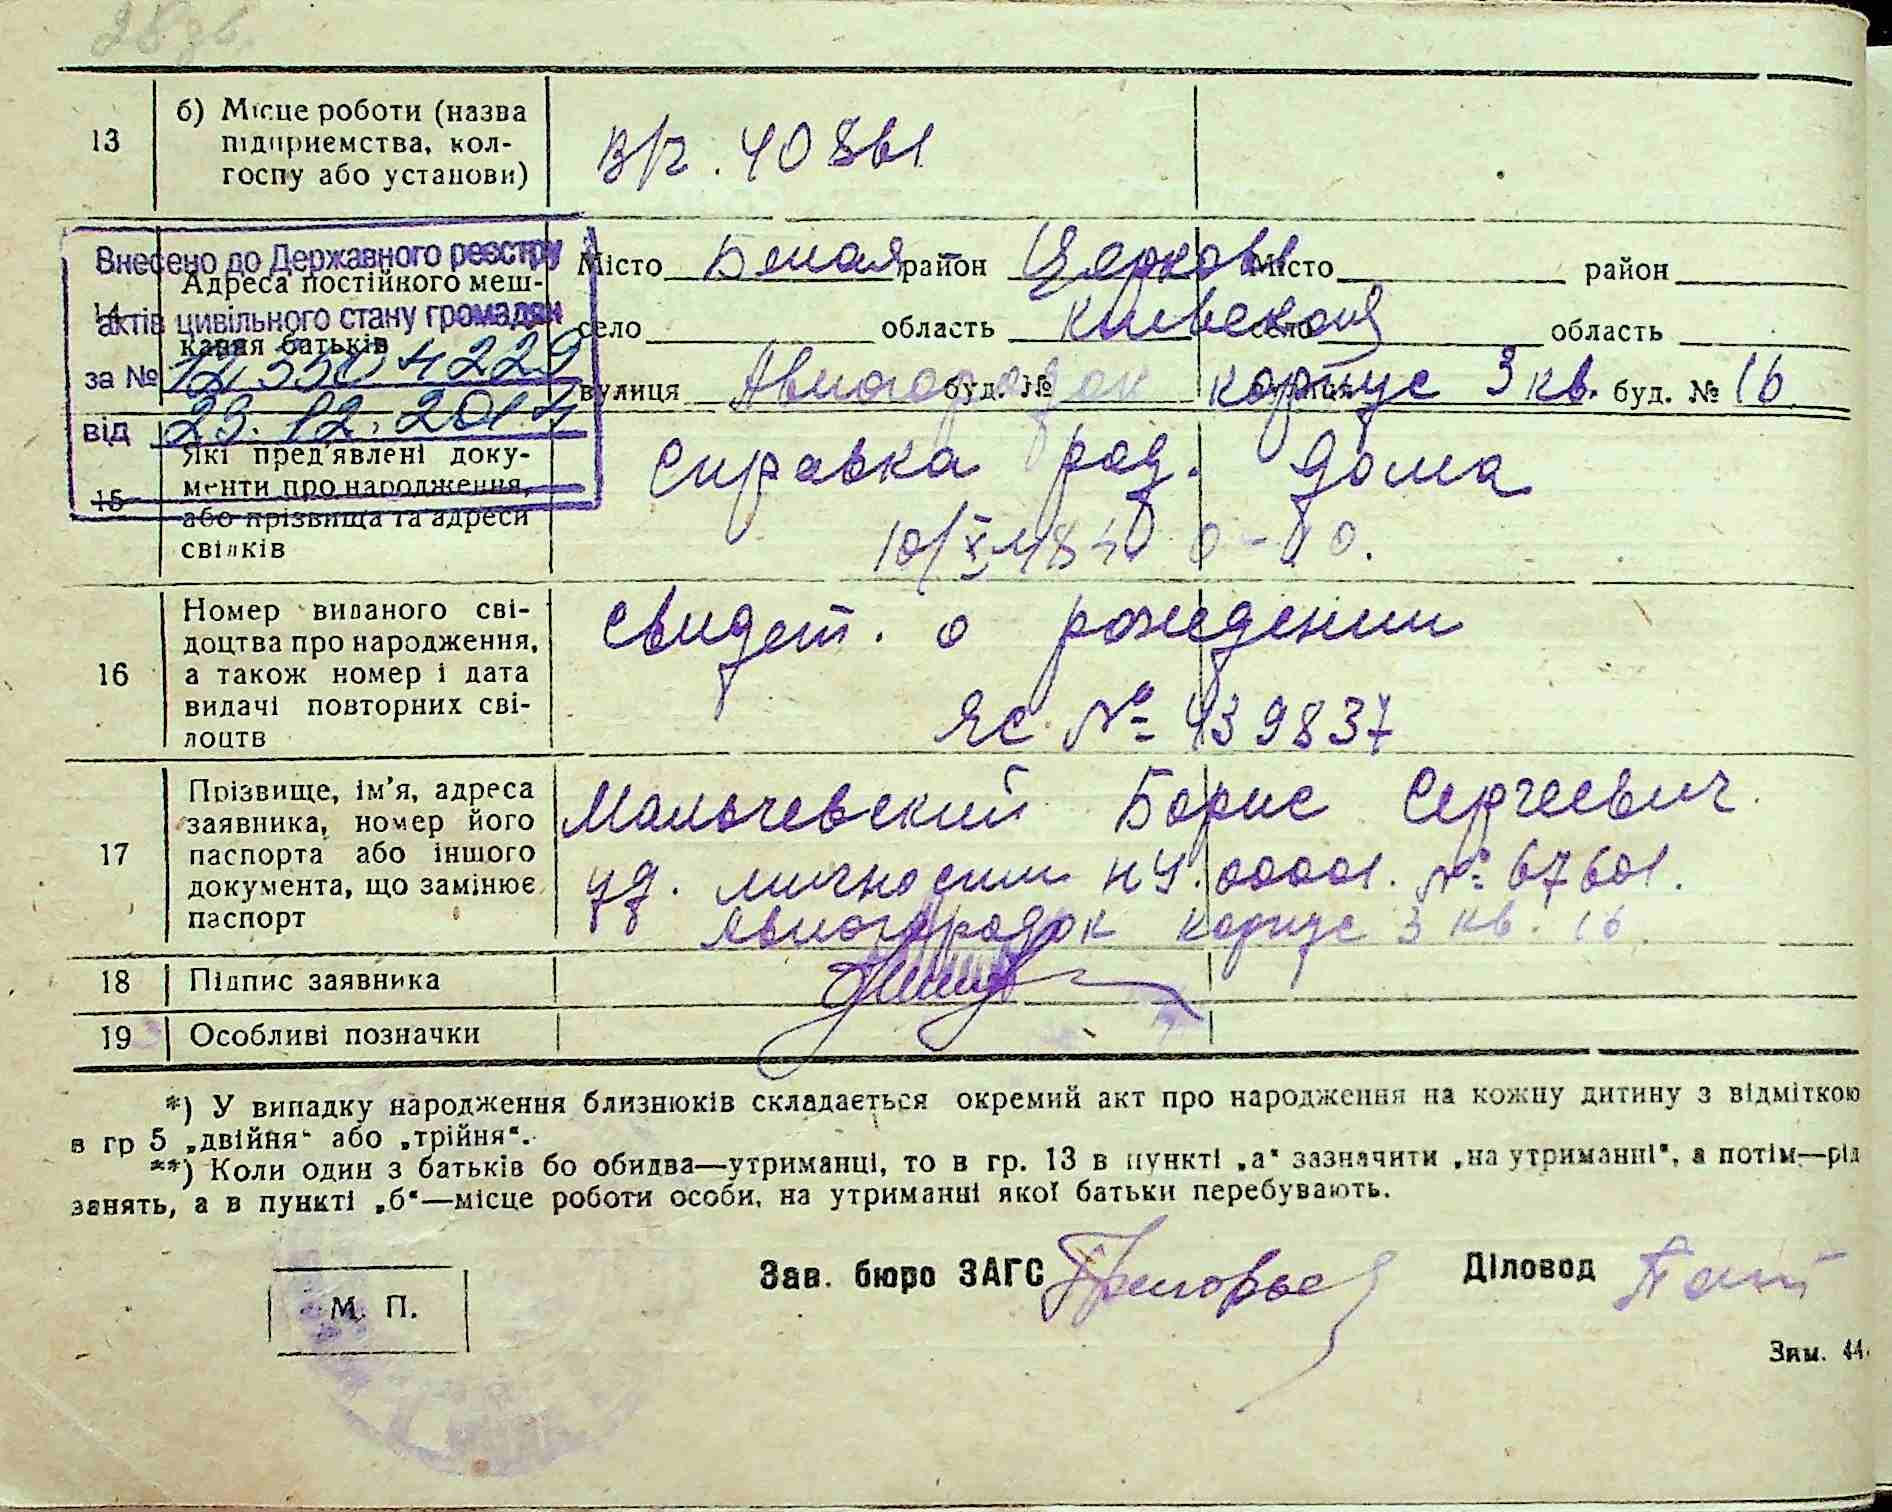 28 зв.
13 б) Місце роботи (назва
підприємства, кол-
госпу або установи)
в/ч. 40861
Внесено до Державного реєстру
актів цивільного стану громадян
за № 12 5504229
від 29.12.2014
14 Адреса постійного меш-
кання батьків
Місто Белая район Церковь Місто район
село область Киевская село область
вулиця Авиогородок буд. № корпус 3 кв. буд. № 16
15 Які пред'явлені доку-
менти про народження,
або прізвища та адреси
свідків
Справка род. дома
16 Номер виданого сві-
доцтва про народження,
а також номер і дата
видачі повторних сві-
доцтв
Свидет. о рождении
ЯС № 439837
17 Прізвище, ім'я, адреса
заявника, номер його
паспорта або іншого
документа, що замінює
паспорт
Мальчевский Борис Сергеевич
уд. личности НЧ. 00001. № 67601.
Авиогородок корпус 3 кв. 16
18 Підпис заявника
19 Особливі позначки
*) У випадку народження близнюків складається окремий акт про народження на кожну дитину з відміткою
в гр 5 „двійня“ або „трійня“.
**) Коли один з батьків бо обидва—утриманці, то в гр. 13 в пункті „а“ зазначити „на утриманні“, а потім—рід
занять, а в пункті „б“—місце роботи особи, на утриманні якої батьки перебувають.
Зав. бюро ЗАГС Григорьев Діловод
М. П.
Зам. 44